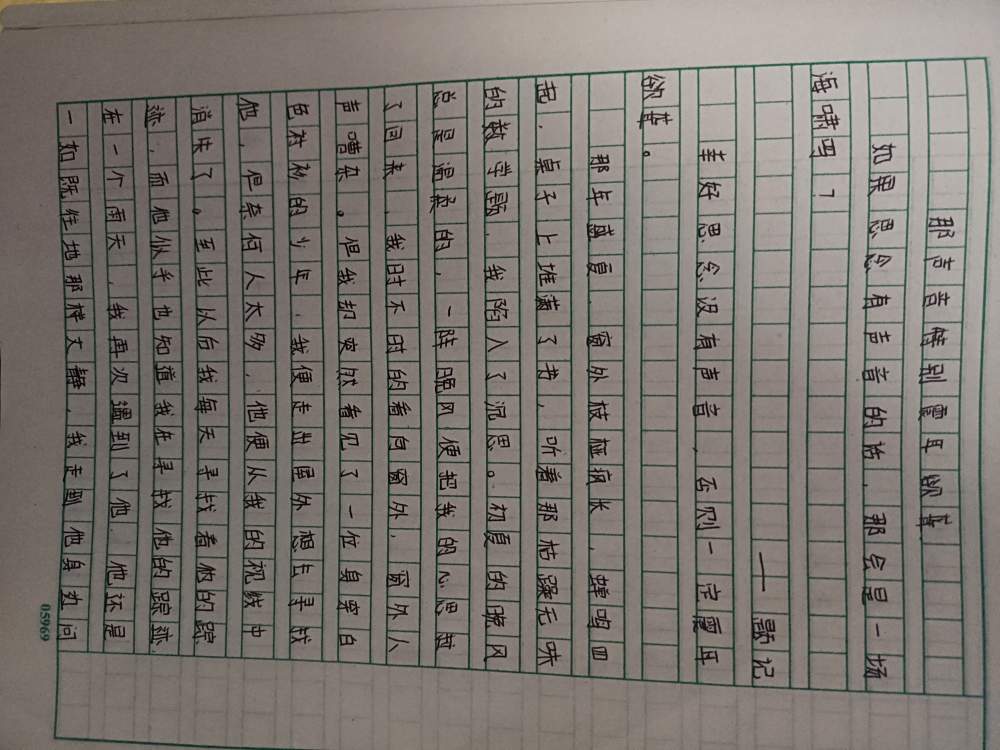 那声音特别震耳欲聋
如果思念有声音的话，那会是一场
海啸吗？
——题记
幸好思念没有声音，否则一定震耳
欲聋。
那年盛夏，窗外枝桠疯长，蝉鸣四
起，桌子上堆满了书，听着那枯躁无味
的数学题，我陷入了沉思。初夏的晚风
总是温柔的，一阵飓风便把我的心思拽
了回来，我时不时的看向窗外，窗外人
声嘈杂。但我却突然看见了一位身穿白
色衬衫的少年，我便走出屋外想去寻找
他，但奈何人太多，他便从我的视线中
消失了。至此以后我每天寻找着他的踪
迹，而他似乎也知道我在寻找他的踪迹.
在一个雨天，我再次遇到了他，他还是
一如既往地那样文静，我走到他身边问
05969